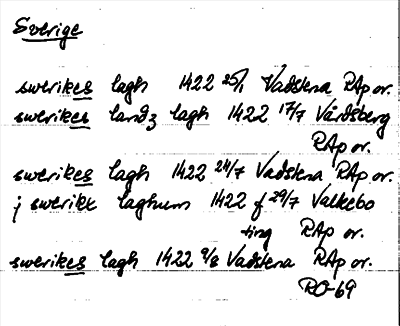 Sverige
swerikes lagh 1422 25/1 Vadstena RAp or.
swerikes landz lagh 1422 17/7 Vårdsberg
RAp or.
swerikes lagh 1422 24/7 Vadstena RAp or.
j swerike laghum 1422 f 29/7 Valkebo
ting RAp or.
swerikes lagh 1422 9/8 Vadstena RAp or.
RO-69